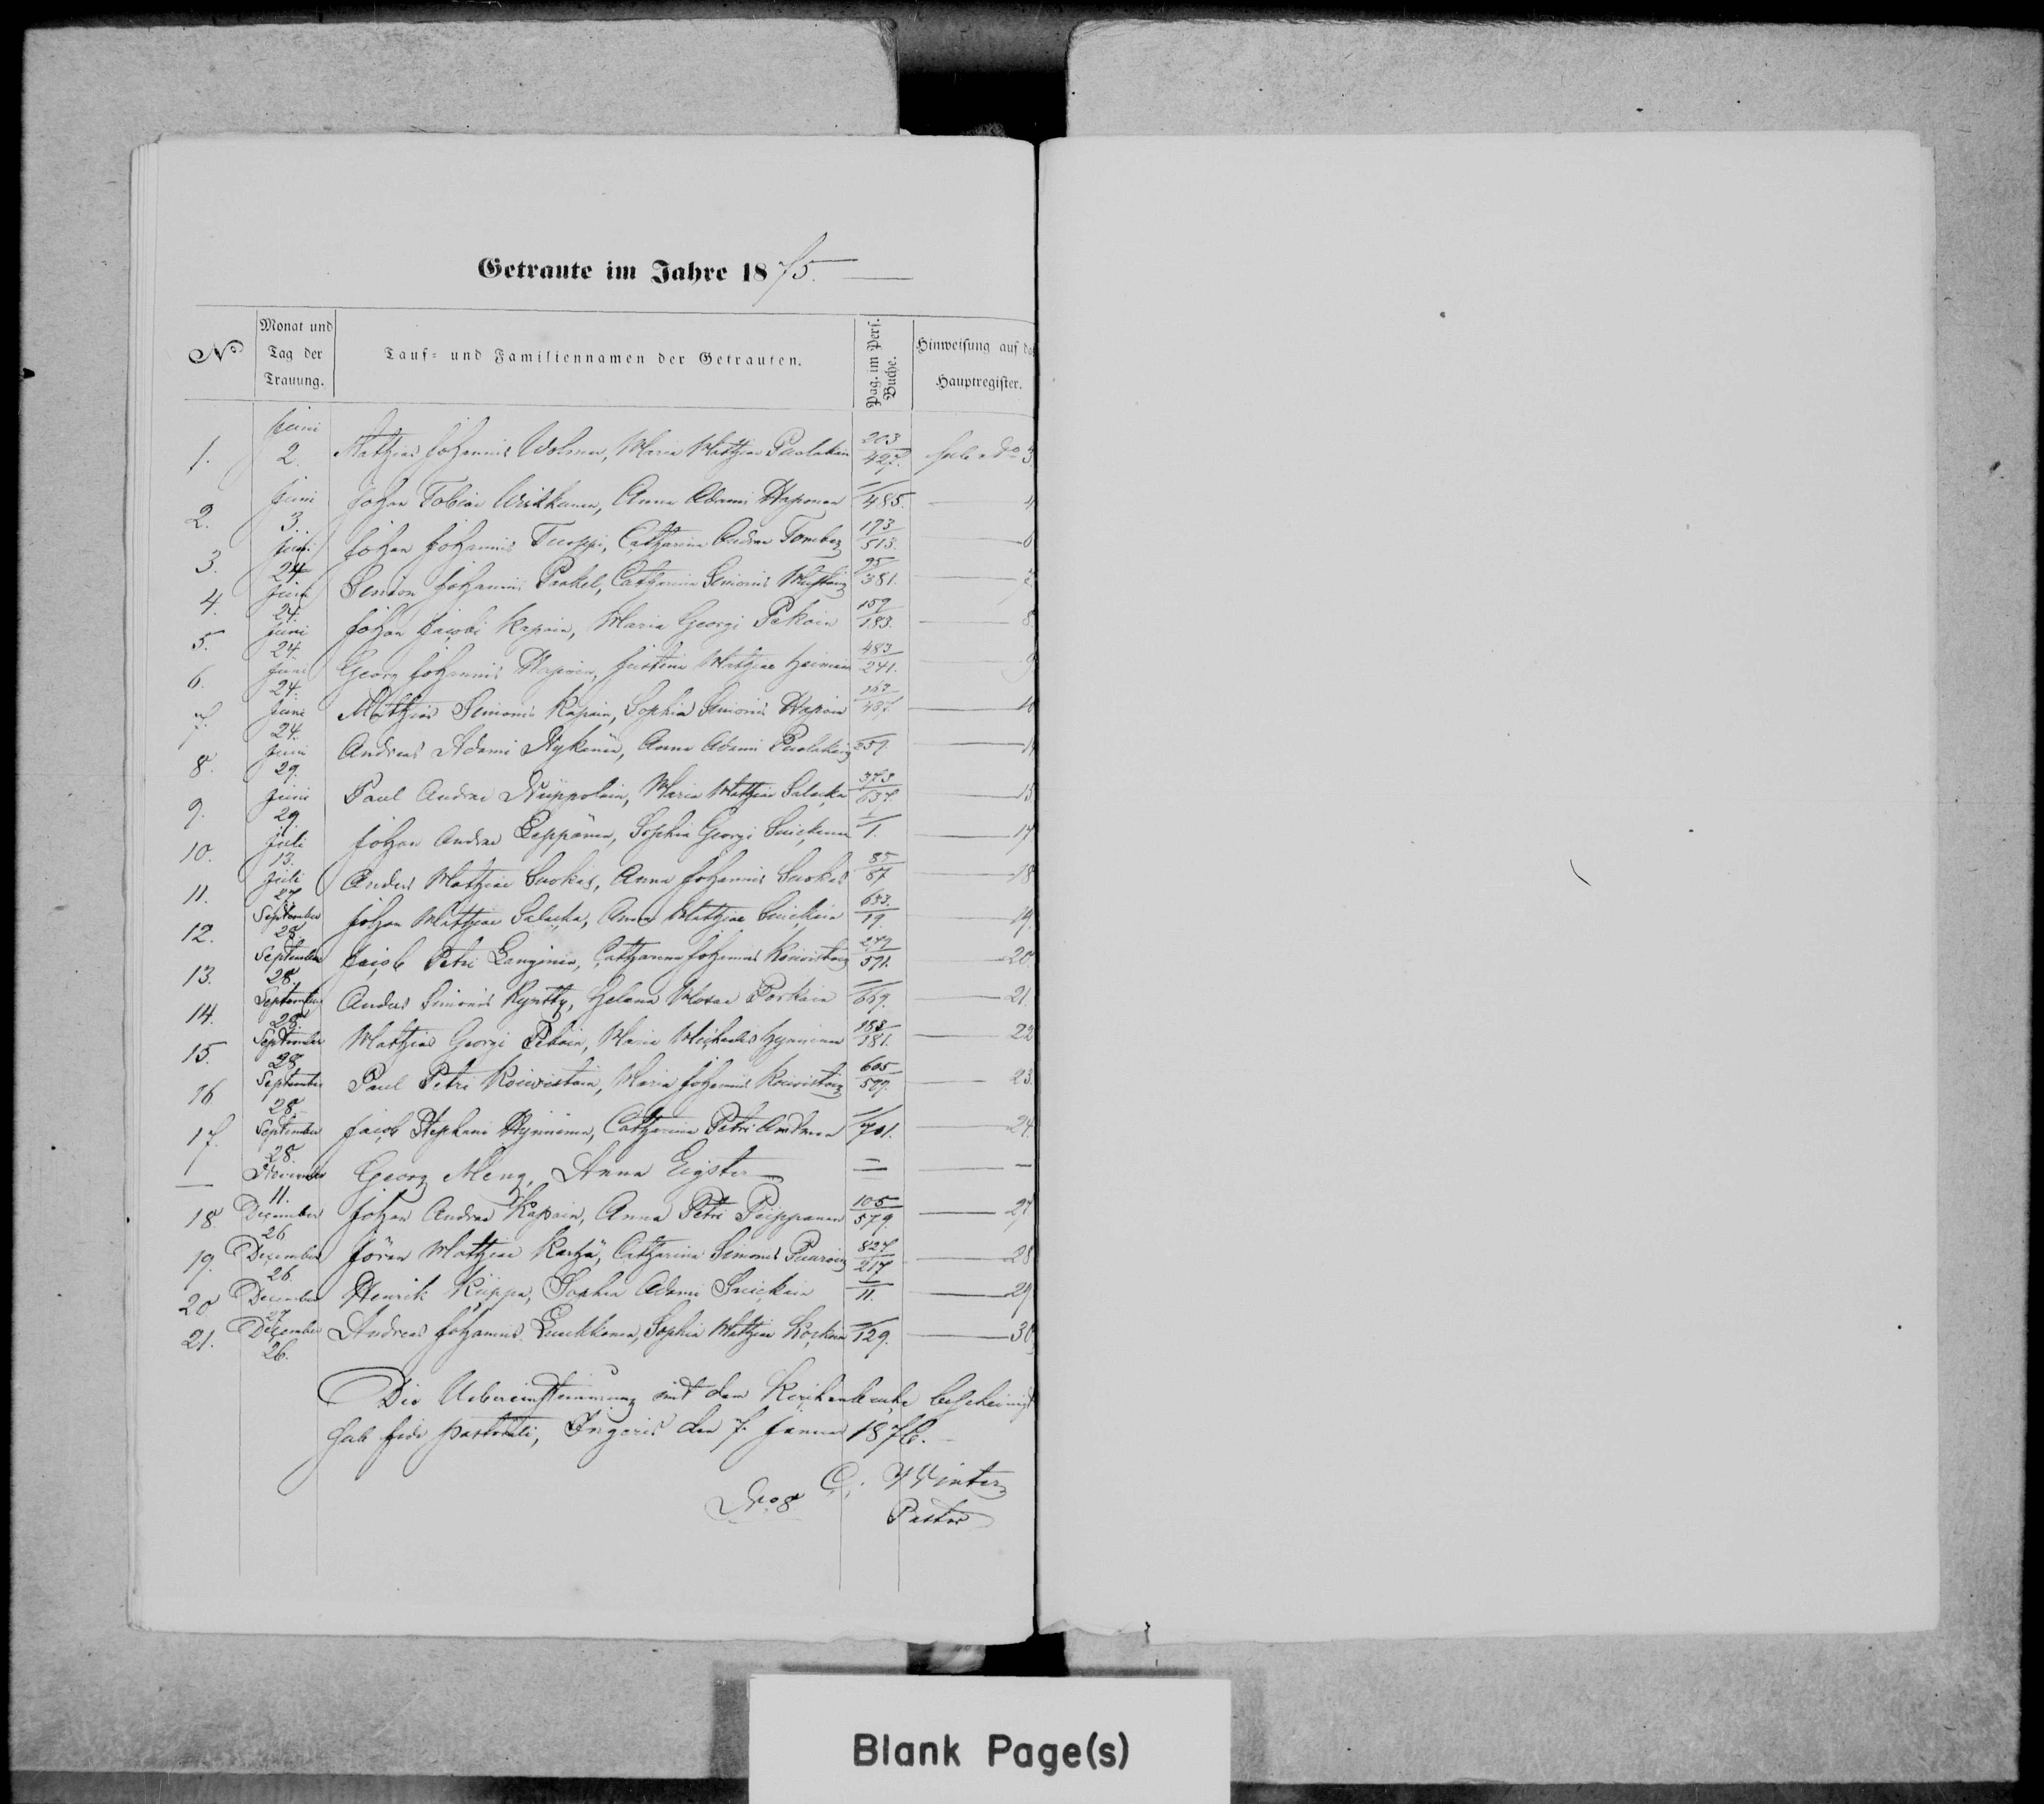 Getraute im Jahre 1875.
No Monat und Tag der Trauung. Tauf- und Familiennamen der Getrauten. Pag. im Pers. Buche. Hinweisung auf das Hauptregister.
1. Juni 2. Mathias Johannis Wolmar, Maria Mathiae Puolakain 203/427. sub No 3
2. Juni 3. Johan Tobiae Uiskkanen, Anna Adami Haponen 485. 4
3. Juni 24 Johan Johannis Tuoppi, Catharina Andreae 173/513. 6
4. Juni 24. Simon Johannis Paakel, Catharina Simonis 95/381. 7
5. Juni 24. Johan Jacobi Kapain, Maria Georgi Pekain 159/183. 8
6. Juni 24. Georg Johannis Hapoin, Justina Mathiae Heiman 483/241. 9
7. Juni 24. Mathias Simonis Kapain, Sophia Simonis Hapoin 163/437. 10
8. Juni 29. Andreas Adami Nykänen, Anna Adami Puolakain 359. 11
9. Juni 29. Paul Andreae Nuppolain, Maria Mathiae Salacka 373/637. 15
10. Juli 13. Johan Andreae Leppänen, Sophia Georgi Suickanen 1. 17
11. Juli 27. Anders Mathiae Suokas, Anna Johannis Suokas 85/87 18
12. September 28. Johan Mathiae Salacka, Anna Mathiae Suickain 653./19. 19.
13. September 28. Jacob Petri Langinen, Catharina Johannis Koiwistoin 249/591. 20.
14. September 28. Anders Simonis Kyntty, Helena Mosae Porkain 669. 21.
15. September 28 Mathias Georgi Pekain, Maria Michaelis Hynninen 183/181. 22
16 September 28. Paul Petri Koiwistoin, Maria Johannis Koiwistoin 605/597. 23.
17. September 28. Jacob Stephani Hynninen, Catharina Petri 701. 24.
— November 11. Georg Meng, Anna Eigster = —
18. December 26 Johan Andreae Kapain, Anna Petri Piipponen 105/579. 27
19. December 26. Jöran Mathiae Karhä, Catharina Simonis Puuroin 827/217 28
20 December 27. Henrik Kuppa, Sophia Adami Suickain 11. 29
21. December 26. Andreas Johannis Luukkanen, Sophia Mathiae Korkain 129. 30
Die Uebereinstimmung mit dem Kirchenbuche bescheinigt
sub fide pastorali, Ingoris den 7. Januar 1876.
C. Winter
No 8 Pastor
Blank Page(s)